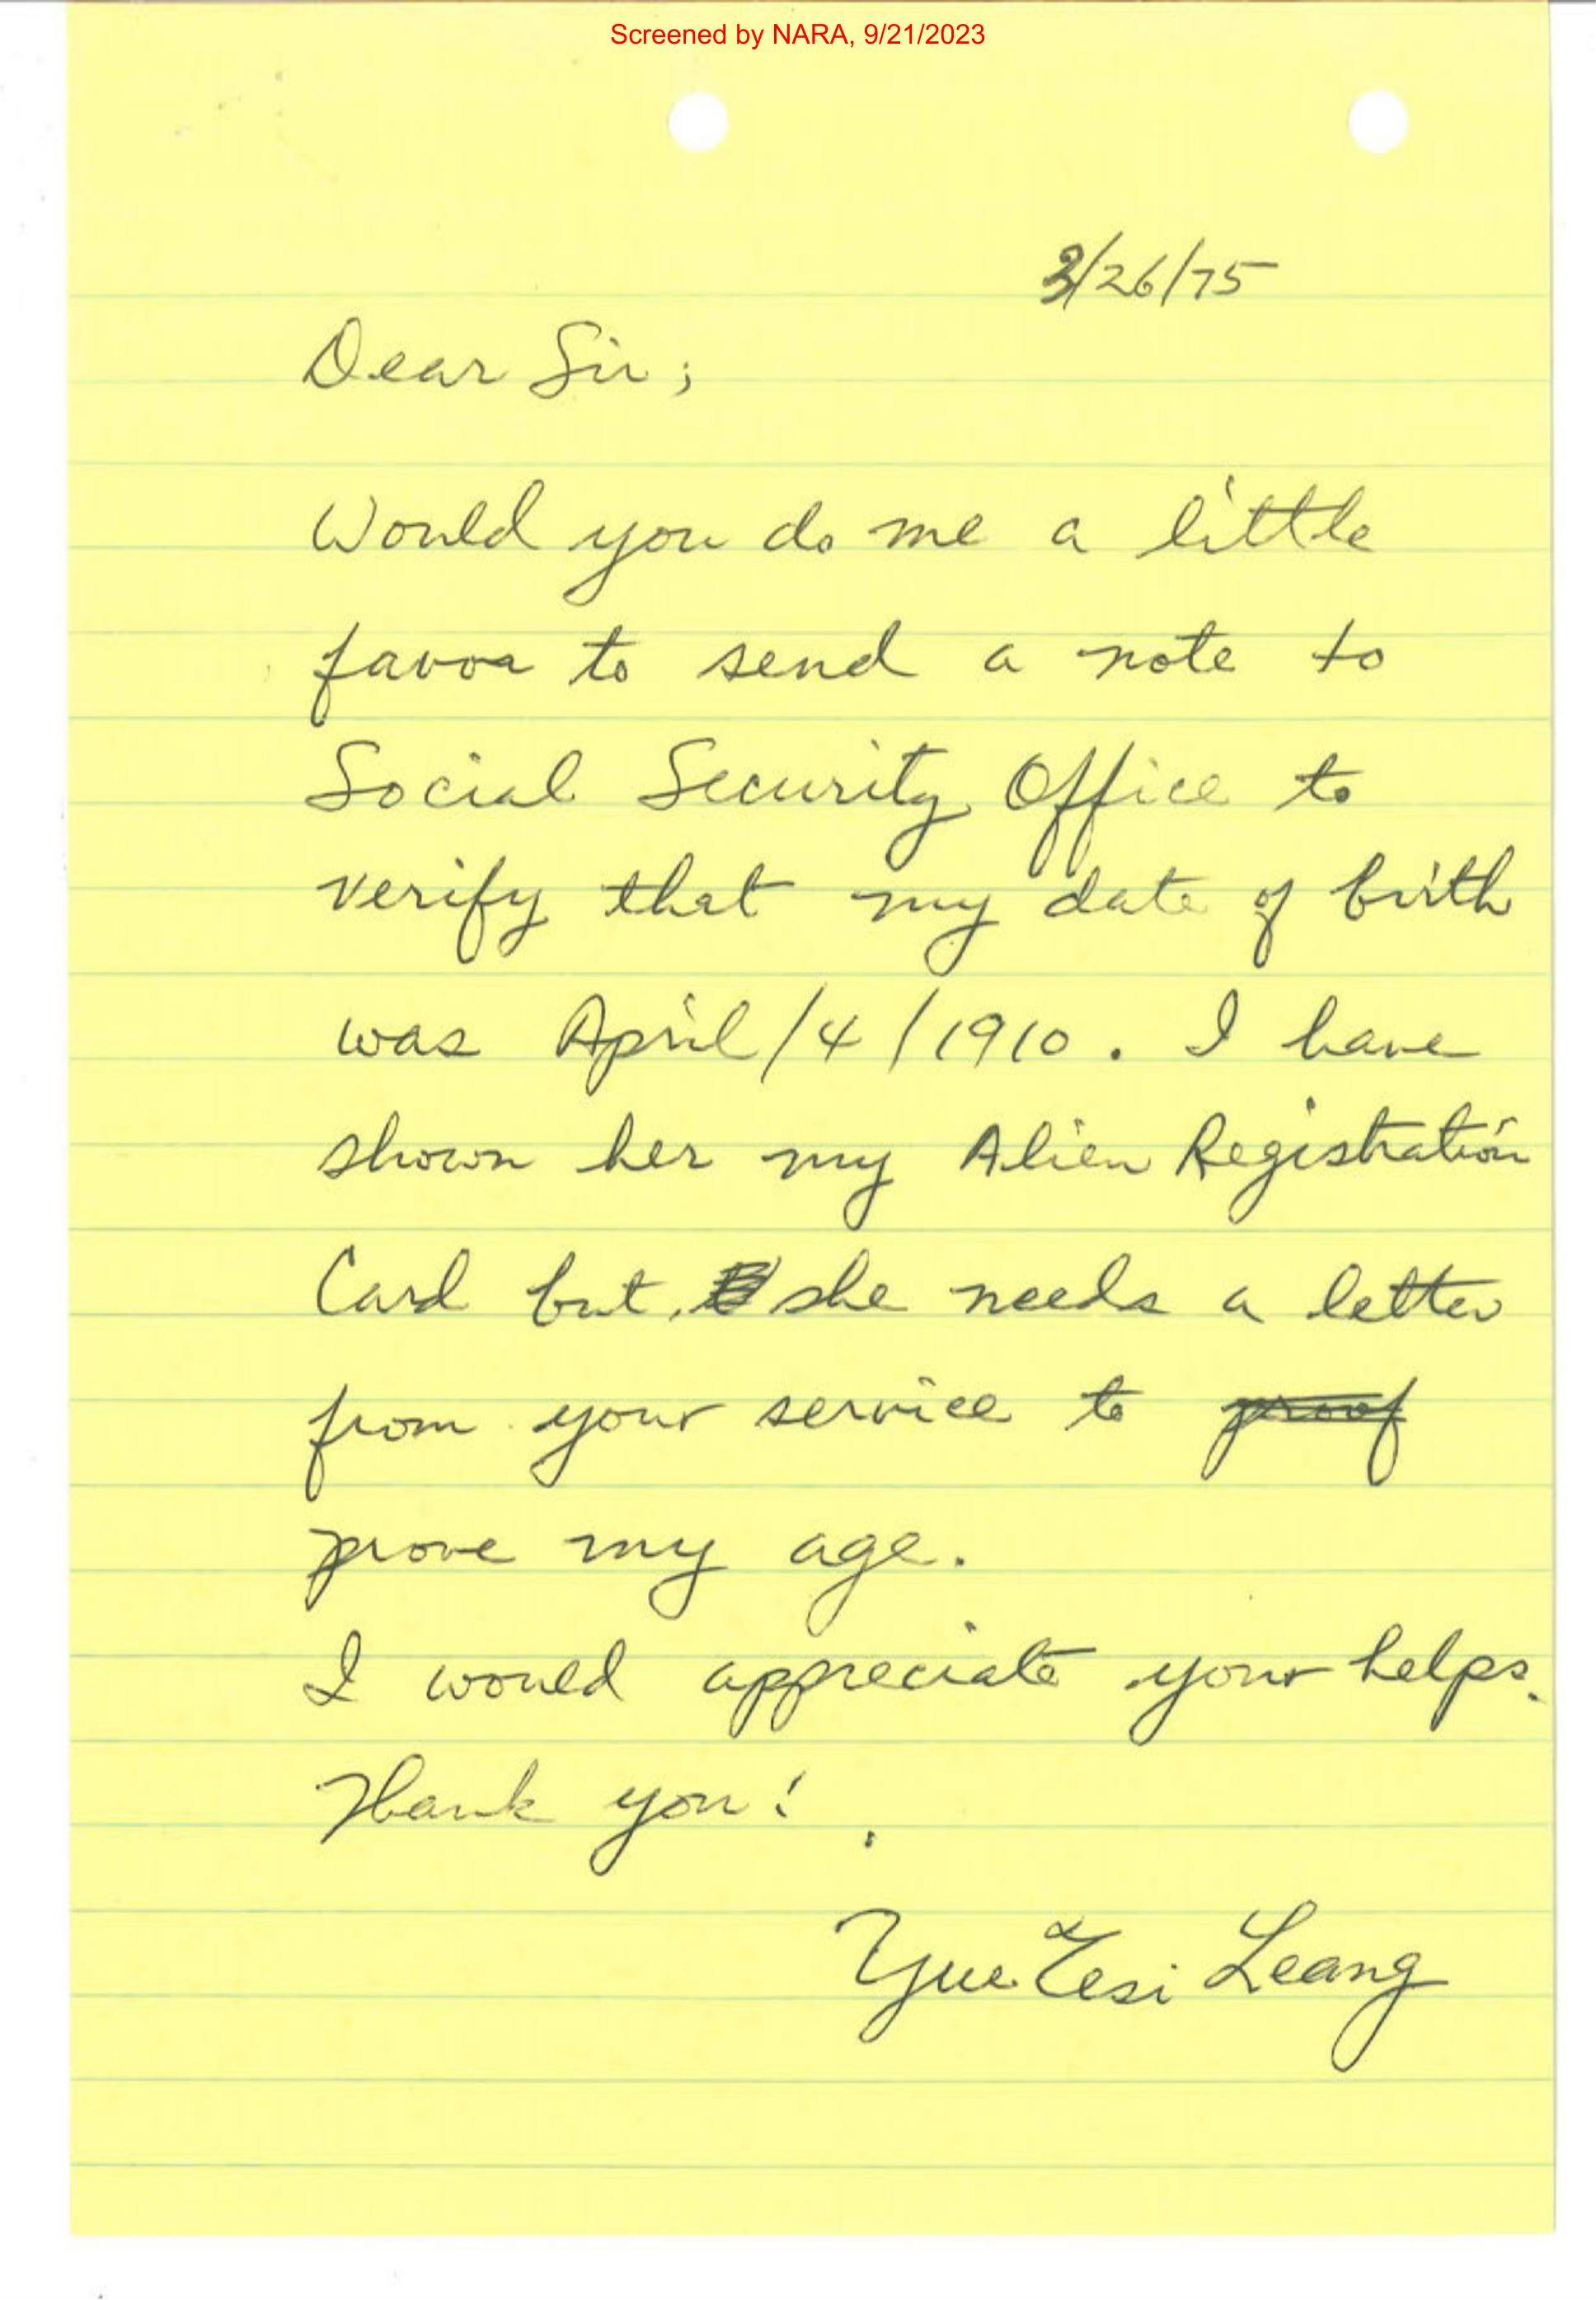 Screened by NARA, 9/21/2023
3/26/75
Dear Sir;
Would you do me a little
favor to send a note to
Social Security Office to
verify that my date of birth
was April/4/1910. I have
shown her my Alien Registration
Card but she needs a letter
from your service to proof
prove my age.
I would appreciate your helps.
Thank you!
Yue Tesi Leang